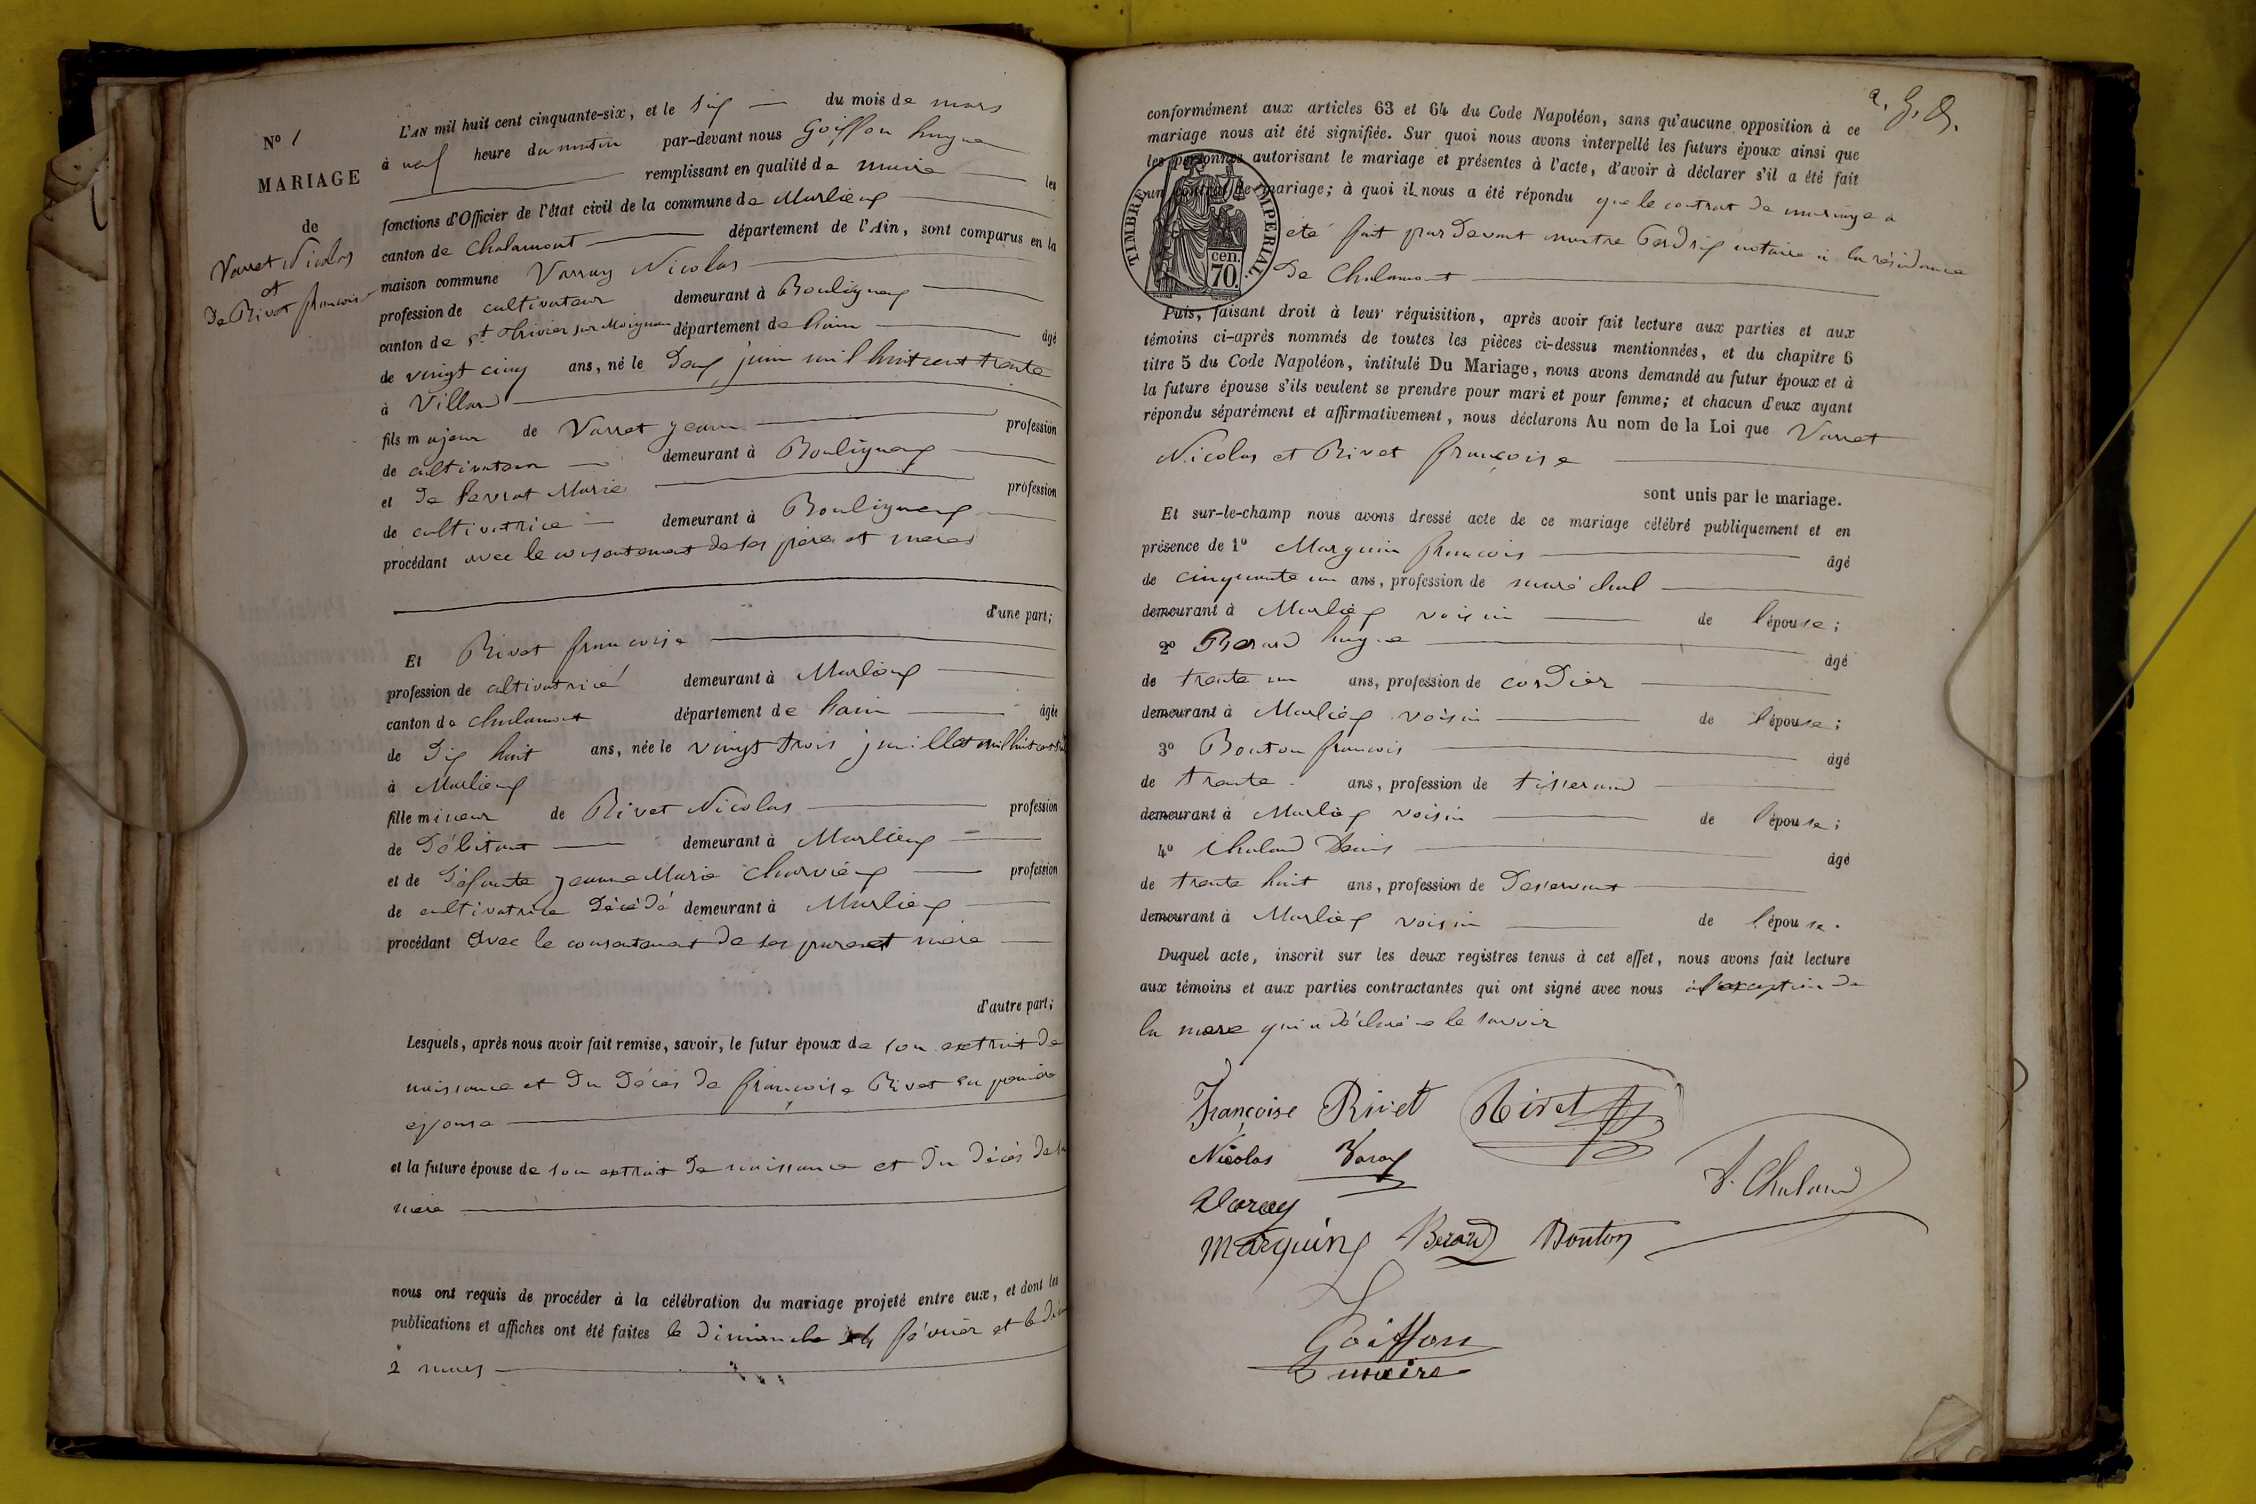 N° 1
MARIAGE
de
Varret Nicolas
et
de Rivet francoise
L'AN mil huit cent cinquante-six, et le six du mois de mars
à neuf heure du matin par-devant nous Goiffon hugue
remplissant en qualité de maire les
fonctions d'Officier de l'état civil de la commune de Marlieux
canton de Chalamont département de l'Ain, sont comparus en la
maison commune Varray Nicolas
profession de cultivateur demeurant à Bouligneux
canton de st thrivier sur Moignan département de hain âgé
de vingt cinq ans, né le deux juin mil huit cent trente
à Villard
fils majeur de Varret jean profession
de cultivateur demeurant à Bouligneux
et de Marie profession
de cultivatrice demeurant à Bouligneux
procédant avec le consentement de ses père et mere
d'une part;
Et Rivet francoise
profession de cultivatrice demeurant à Marlieux
canton de chalamont département de hain âgée
de dix huit ans, née le vingt trois juillet mil huit cent
à Marlieux
fille mineur de Rivet Nicolas profession
de débitant demeurant à Marlieux
et de défunte jeanne Marie Charvieux profession
de cultivatrice décédé demeurant à Marlieux
procédant avec le consentement de ses pere et mere
d'autre part;
Lesquels, après nous avoir fait remise, savoir, le futur époux de son extrait de
naissance et du décès de françoise Rivet sa première
epouse
et la future épouse de son extrait de naissance et du décès de sa
mere
nous ont requis de procéder à la célébration du mariage projeté entre eux, et dont les
publications et affiches ont été faites le dimanche 24 février et le
2 mars
conformément aux articles 63 et 64 du Code Napoléon, sans qu'aucune opposition à ce
mariage nous ait été signifiée. Sur quoi nous avons interpellé les futurs époux ainsi que
les personnes autorisant le mariage et présentes à l'acte, d'avoir à déclarer s'il a été fait
un contrat de mariage; à quoi il nous a été répondu que le contrat de mariage a
TIMBRE IMPERIAL.
cen.
70.
été fait par devant maitre notaire à la résidence
de Chalamont
Puis, faisant droit à leur réquisition, après avoir fait lecture aux parties et aux
témoins ci-après nommés de toutes les pièces ci-dessus mentionnées, et du chapitre 6
titre 5 du Code Napoléon, intitulé Du Mariage, nous avons demandé au futur époux et à
la future épouse s'ils veulent se prendre pour mari et pour femme; et chacun d'eux ayant
répondu séparément et affirmativement, nous déclarons Au nom de la Loi que Varret
Nicolas et Rivet françoise
sont unis par le mariage.
Et sur-le-champ nous avons dressé acte de ce mariage célébré publiquement et en
présence de 1° Marguin francois âgé
de cinquante un ans, profession de maré chal
demeurant à Marlieux voisin de l'épouse;
2° Berard hugue âgé
de trente un ans, profession de cordier
demeurant à Marlieux voisin de l'épouse;
3° Bouton francois âgé
de trente ans, profession de tisserand
demeurant à Marlieux voisin de l'épouse;
4° Chaland Denis âgé
de trente huit ans, profession de desservant
demeurant à Marlieux voisin de l'épouse.
Duquel acte, inscrit sur les deux registres tenus à cet effet, nous avons fait lecture
aux témoins et aux parties contractantes qui ont signé avec nous à l'exception de
la mere qui a déclaré ne le savoir
Françoise Rivet Rivet
Nicolas Varay
Varay D. Chaland
Marguin Berard Bouton
Goiffon
maire